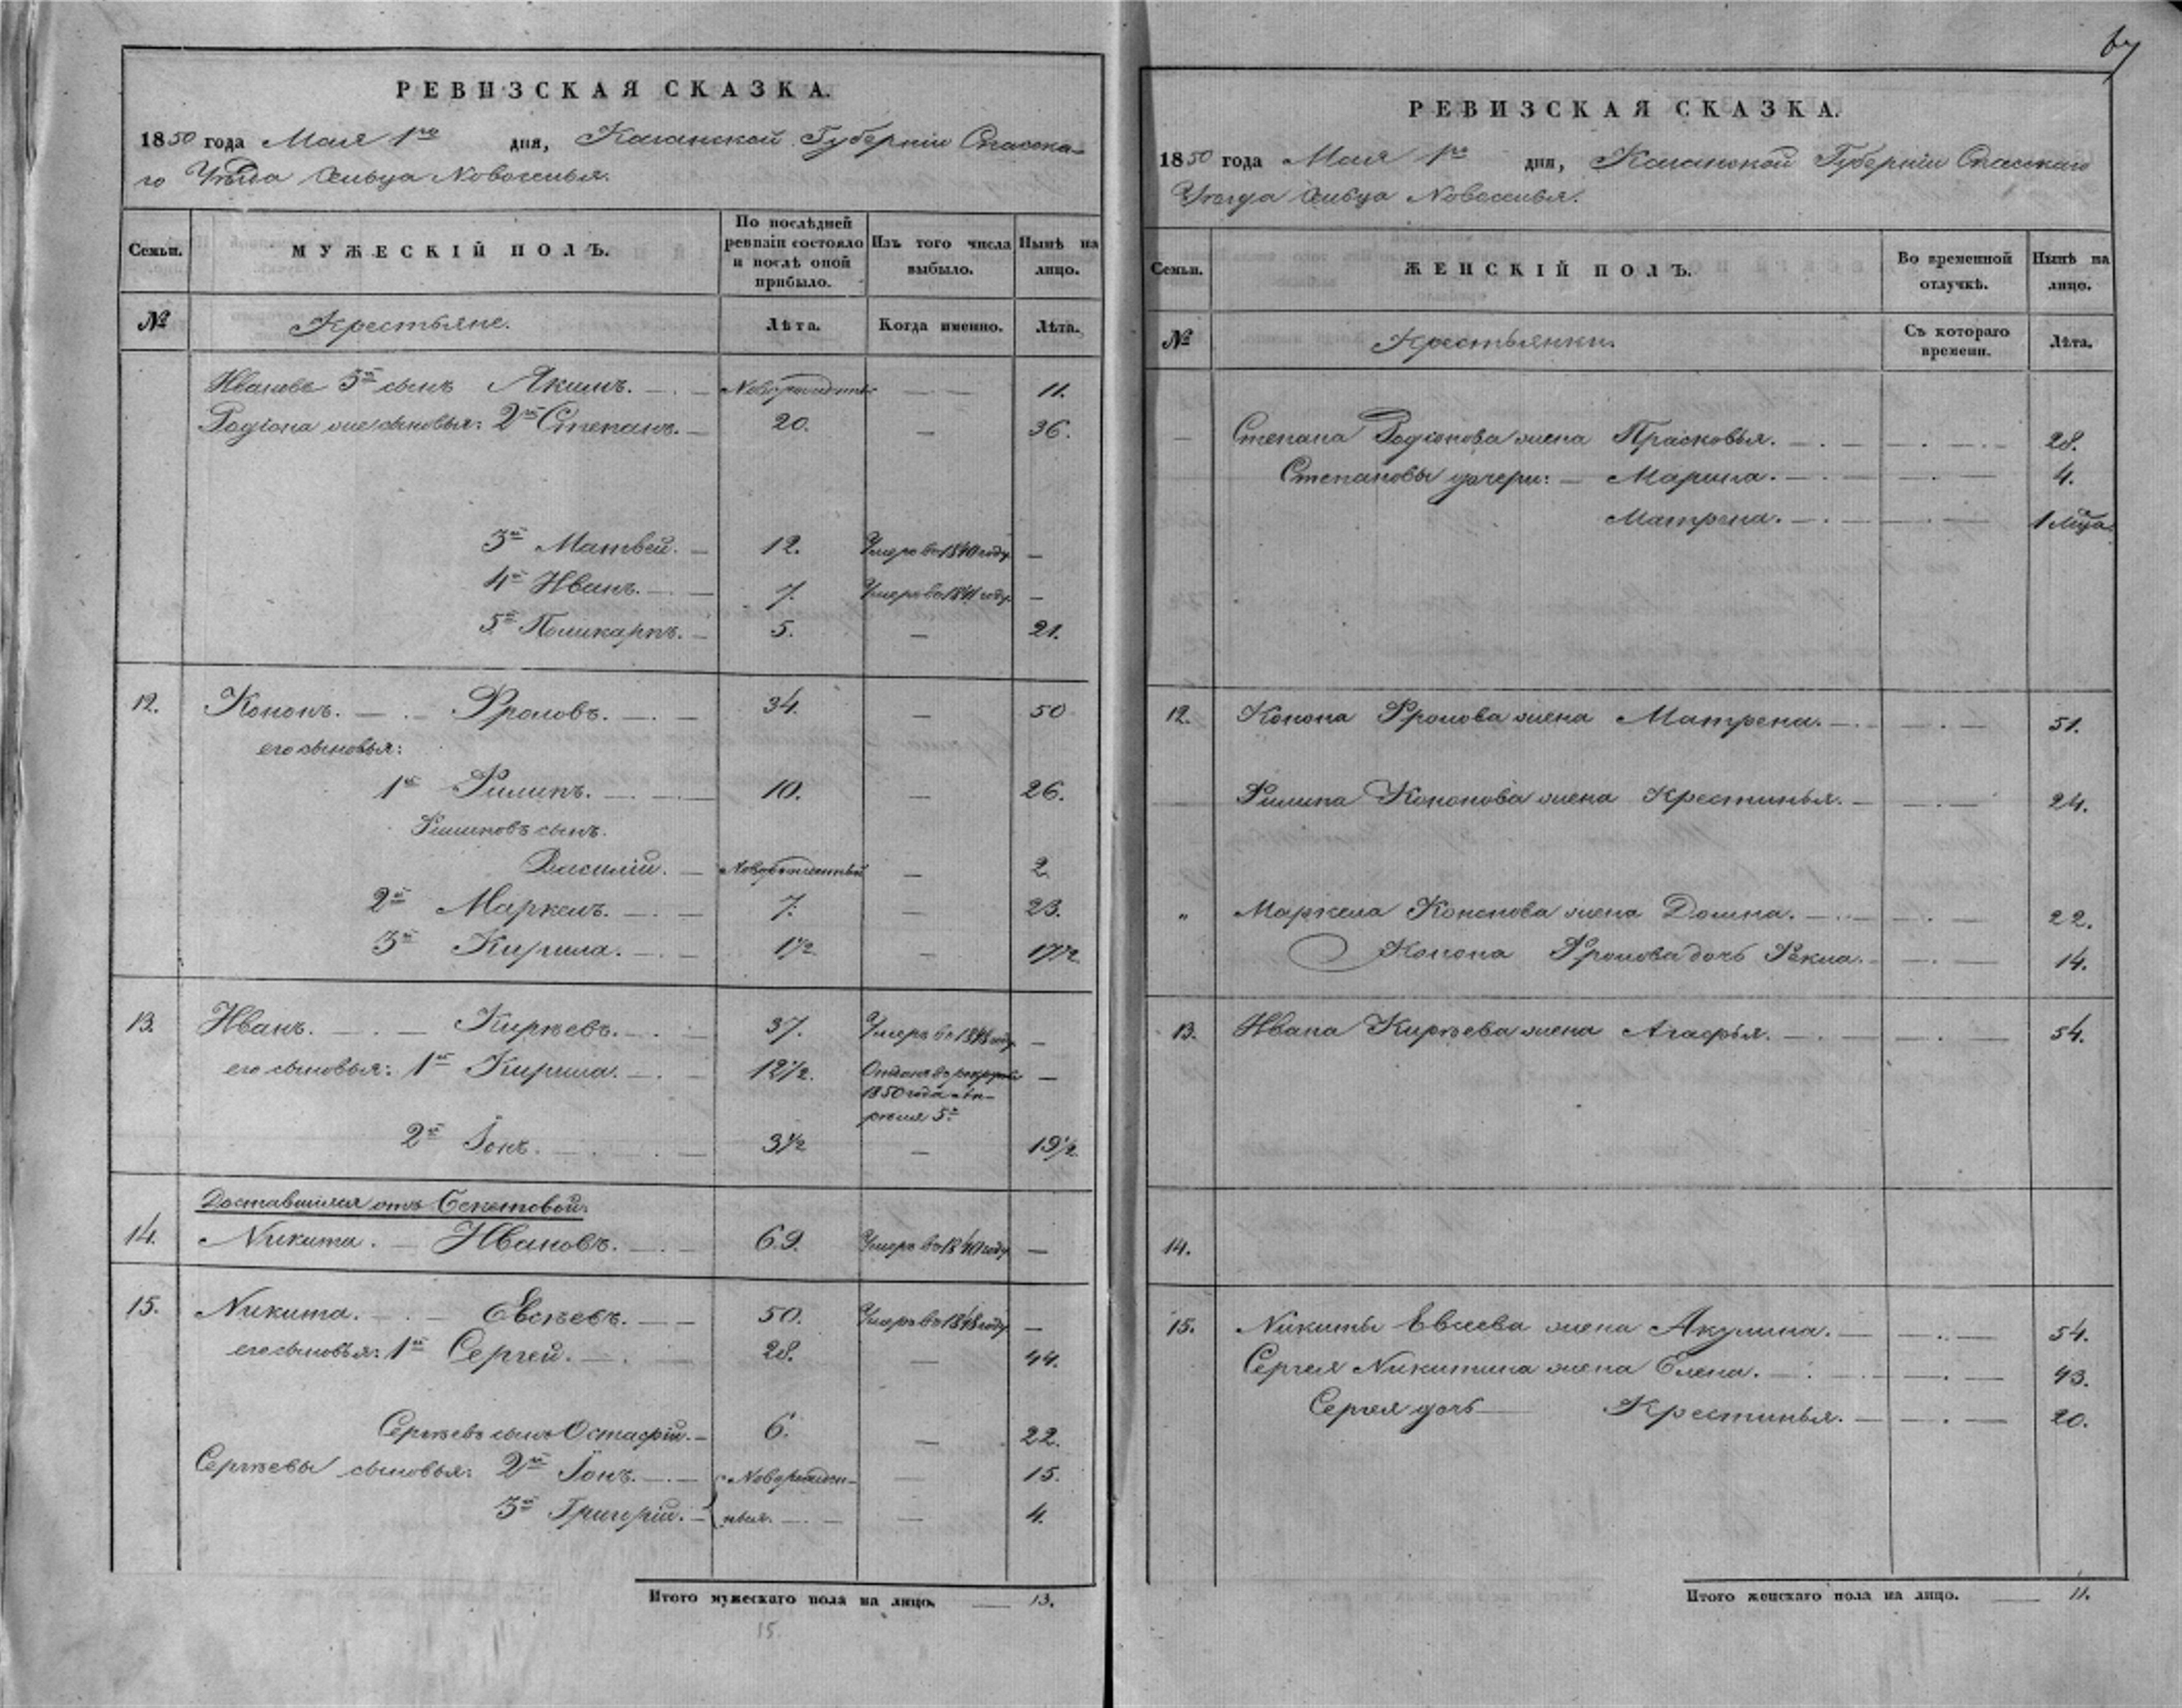 РЕВИЗСКАЯ СКАЗКА.
1850 года Маія 1го дня, Казанской Губерніи Спасска-
го Уѣзда Сельца Новоселья.
Семьи.
МУЖЕСКІЙ ПОЛЪ.
По послѣдней ревизіи состояло и послѣ оной прибыло.
Изъ того числа выбыло.
Нынѣ на лицо.
№ Крестьяне. Лѣта. Когда именно. Лѣта.
Ивановъ 5й сынъ Якимъ. — Новорожденный — — 11.
Родіона же сыновья: 2й Степанъ. — 20. — 36.
3й Матвей. — 12. Умеръ въ 1840 году —
4й Иванъ. — 7. Умеръ въ 1841 году —
5й Поликарпъ. — 5. — 21.
12. Кононъ. — Фроловъ. — 34. — 50
его сыновья:
1й Филипъ. — 10. — 26.
Филиповъ сынъ.
Василій. — Новорожденный — 2
2й Маркелъ. — 7. — 23.
3й Кирила. — 1½ — 17½
13. Иванъ. — Кирѣевъ. — 37. Умеръ въ 1848 году —
его сыновья: 1й Кирила. — 12½. Отданъ въ рекруты —
1850 года ап-
рѣля 5го
2й Іонъ. — 3½ — 19½
Доставшіяся отъ
14. Никита. — Ивановъ. — 69. Умеръ въ 1840 году —
15. Никита. — Евсѣевъ. — 50. Умеръ въ 1848 году —
его сыновья: 1й Сергей. — 28. — 44.
Сергѣевъ сынъ Остафій. — 6. — 22.
Сергѣевы сыновья: 2й Іонъ. — Новорожден- — 15.
3й Григорій. — ныя. — — 4.
Итого мужескаго пола на лицо. — 13.
15.
РЕВИЗСКАЯ СКАЗКА.
1850 года Маія 1го дня, Казанской Губерніи Спасскаго
Уѣзда Сельца Новоселья.
Семьи.
ЖЕНСКІЙ ПОЛЪ.
Во временной отлучкѣ.
Нынѣ на лицо.
№ Крестьянки. Съ котораго времени. Лѣта.
— Степана Родіонова жена Прасковья. — — 28.
Степановы дочери: — Марина. — — 4.
Матрена. — — 1 мѣся.
12. Конона Фролова жена Матрена. — — 51.
Филипа Кононова жена Крестинья. — — 24.
„ Маркела Кононова жена Домна. — — 22.
Конона Фролова дочь Фекла. — — 14.
13. Ивана Кирѣева жена Агафья. — — 54.
14.
15. Никиты Евсеева жена Акулина. — — 54.
Сергея Никитина жена Елена. — — 43.
Сергея дочь — Крестинья. — — 20.
Итого женскаго пола на лицо. — 11.